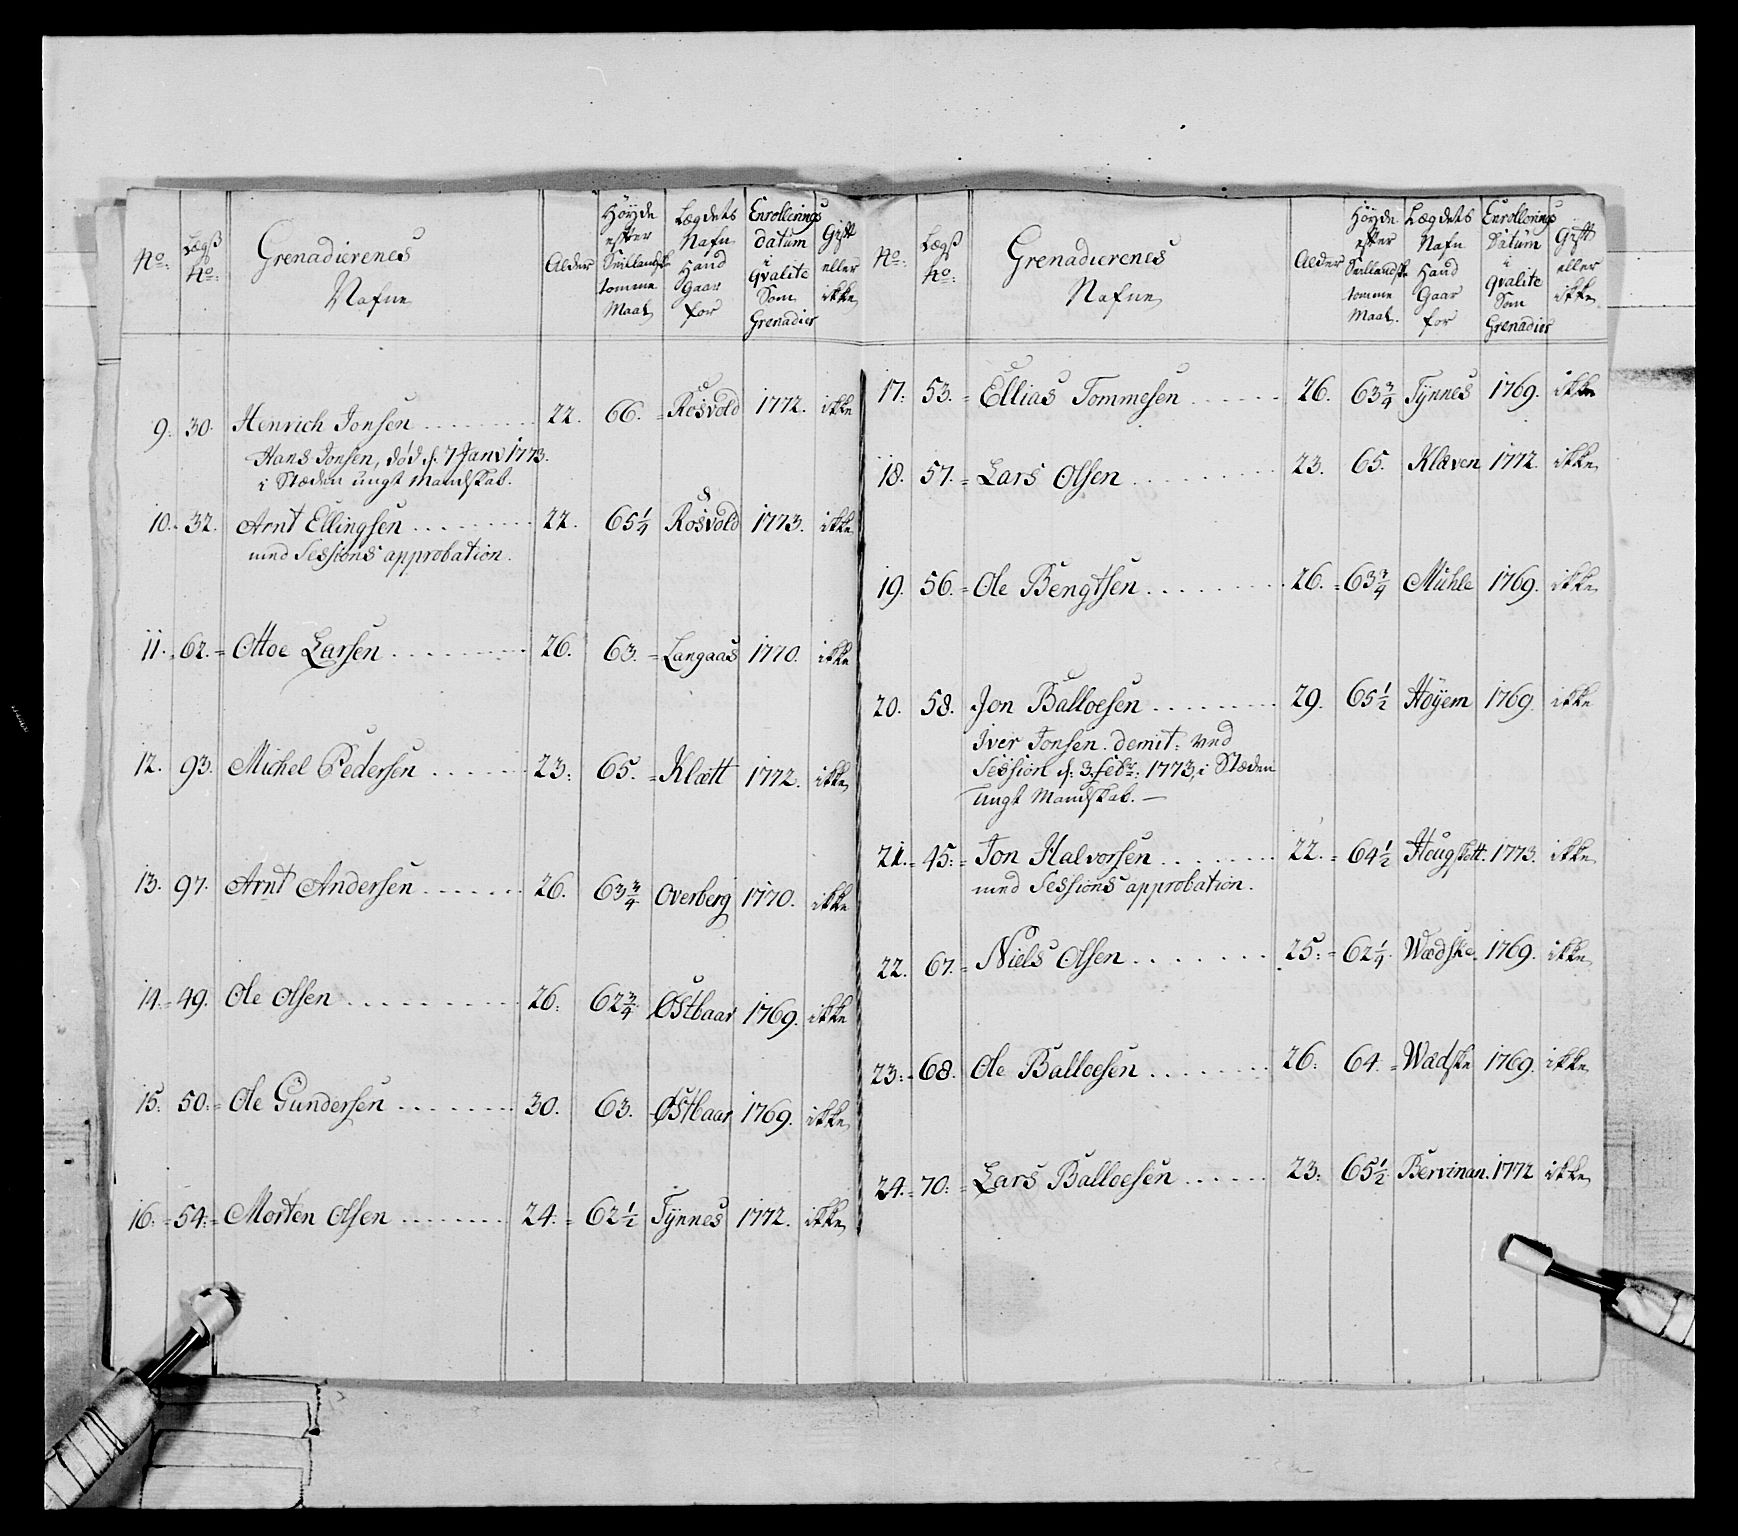 No: Lægs No: Grenadierenes Nafne Alder Høyde efter Siellandske tomme Maal Lægdets Nafn Hand Gaar for Enrollerings datum i Qvalite Som Grenadier Gift eller ikke
9. 30. Henrich Jonsen 22. 66. Rosvold 1772. ikke
Hans Jonsen, død d. 7 Janv 1773.
i Stæden ungt Mandskab.
10. 32. Arnt Ellingsen 22. 65 1/4 Rosvold 1773. ikke
med Sessions approbation.
11. 62. Ottoe Larsen 26. 63. Langaas 1770. ikke
12. 93. Michel Pedersen 23. 65. Klætt 1772. ikke
13. 97. Arnt Andersen 26. 63 3/4 Overberg 1770. ikke
14. 49. Ole Olsen 26. 62 3/4 Østbaar 1769. ikke
15. 50. Ole Gundersen 30. 63. Østbaar 1769. ikke
16. 54. Morten Olsen 24. 62 1/2 Tÿnnes 1772. ikke
No: Lægs No: Grenadierenes Nafne Alder Høyde efter Siellandske tomme Maal Lægdets Nafn Hand Gaar for Enrollerings Datum i Qvalite Som Grenadier Gift eller ikke
17. 53. Ellias Tommesen 26. 63 3/4 Tÿnnes 1769. ikke
18. 57. Lars Olsen 23. 65. Klæven 1772. ikke
19. 56. Ole Bengtsen 26. 63 3/4 Mühle 1769. ikke
20. 58. Jon Balloesen 29. 65 1/2 Høÿem 1769. ikke
Iver Jonsen demit: ved
Session d: 3 Febr: 1773, i Stæden
ungt Mandskab. —
21. 45. Jon Halvorsen 22. 64 1/2 Hougslett. 1773. ikke
med Sessions approbation.
22. 67. Niels Olsen 25. 62 1/4 Wædske 1769. ikke
23. 68. Ole Balloesen 26. 64. Wædske 1769. ikke
24. 70. Lars Balloesen 23. 65 1/2 Bervinan. 1772 ikke